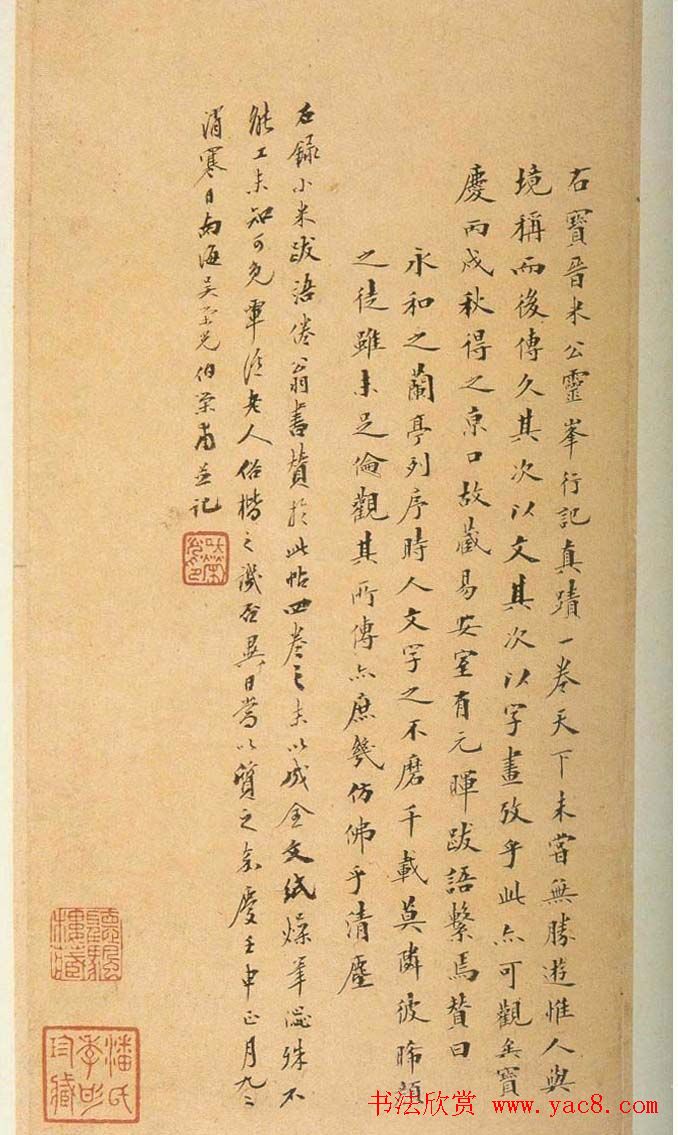 右寶晉米公靈峯行記真蹟一卷天下未嘗無勝遊惟人與
境稱而後傳久其次以文其次以字畫攷乎此亦可觀矣寶
慶丙戌秋得之京口故藏易安室有元暉跋語繫焉贊曰
永和之蘭亭列序時人文字之不磨千載莫隣彼晞顔
之徒雖未足倫觀其所傳亦庶幾仿佛乎清塵
右錄小米跋語倦翁書贊於此帖四卷之末以成全文紙燥筆澀殊不
能工未知可免覃溪老人俗楷之譏否異日當以質之嘉慶壬申正月九
消寒日南海吳榮光伯榮甫並記
潘氏季彤珍藏
书法欣赏 www.yac8.com